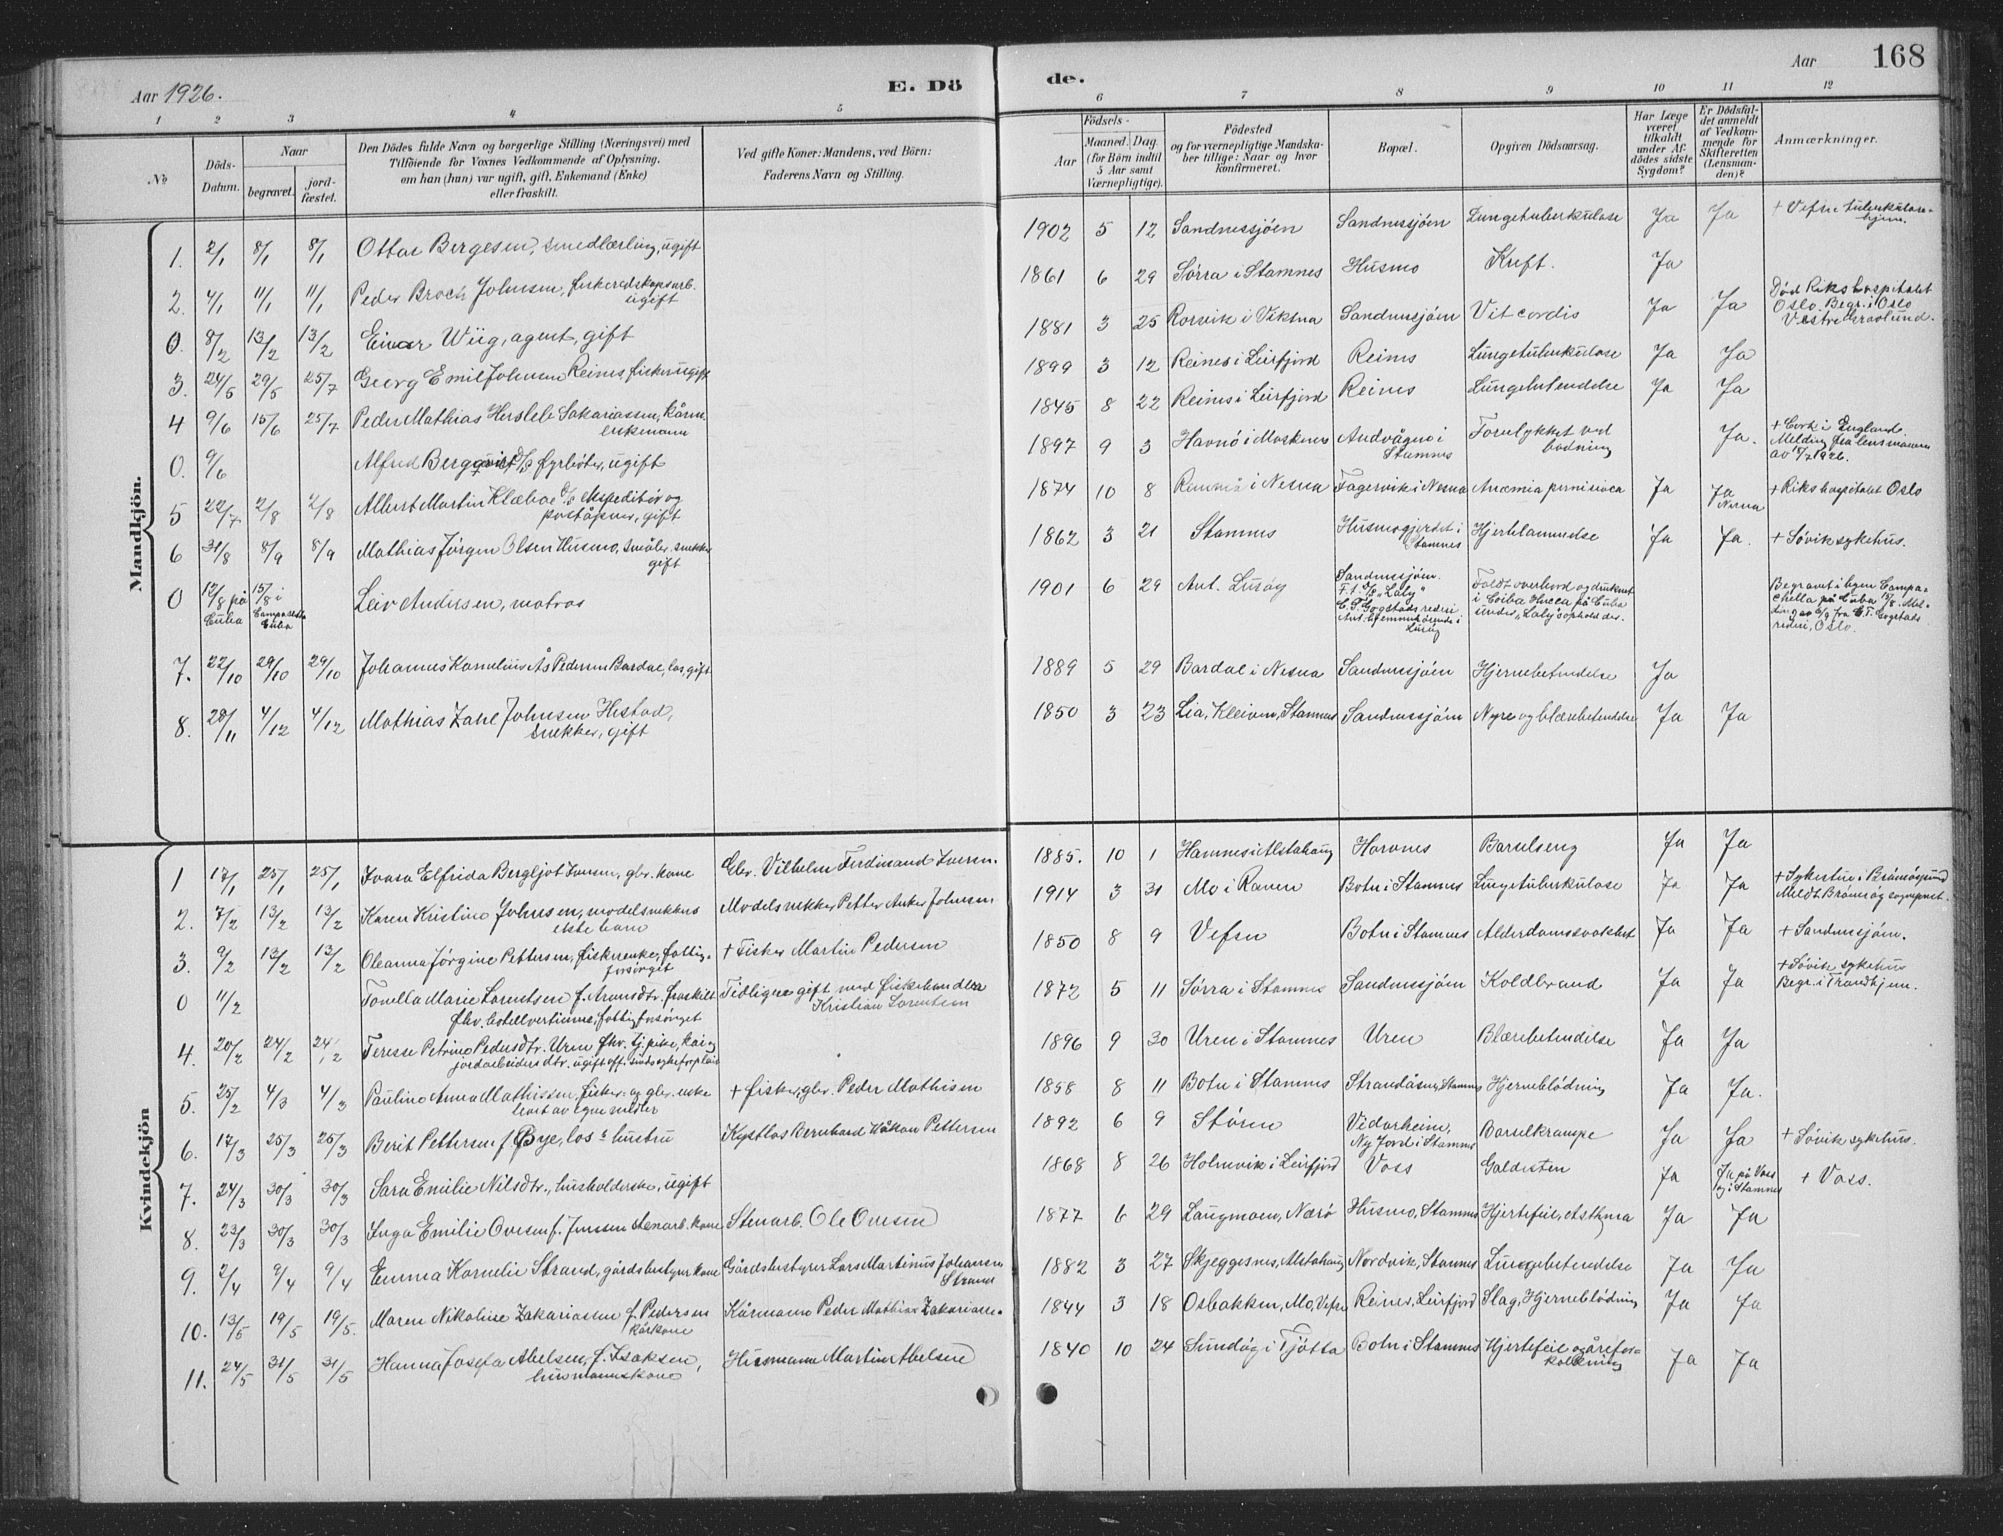 Aar 1926.
E. Dö
de.
Aar 168
1 2 3 4 5
6 7 8 9 10 11 12
No
Döds-Datum.
Naar
begravet.
jord-fæstet.
Den Dödes fulde Navn og borgerlige Stilling (Næringsvei) med
Tilföiende for Voxnes Vedkommende af Oplysning,
om han (hun) var ugift, gift, Enkemand (Enke)
eller fraskilt.
Ved gifte Koner: Mandens, ved Börn:
Faderens Navn og Stilling.
Födsels-
Aar
Maaned. Dag.
(for Börn indtil
5 Aar samt
Værnepligtige).
Födested
og for værnepligtige Mandska-
ber tillige: Naar og hvor
konfirmeret.
Bopæl.
Opgiven Dödsaarsag.
Har Læge
været
tilkaldt
under Af-
dödes sidste
Sygdom?
Er Dödsfal-
det anmeldt
af Vedkom-
mende for
Skifteretten
(Lensman-
den)?
Anmærkninger.
Mandkjön.
1. 2/1 8/1 8/1 Ottar Bergesen, smedlærling, ugift 1902 5 12 Sandnessjöen Sandnessjöen Lungetuberkulose Ja Ja + Vefsn tuberkulose-
hjem.
2. 4/1 11/1 11/1 Peder Broch Johnsen, fiskeredskapsarb.
ugift 1861 6 29 Sörra i Stamnes Husmo Kreft. Ja
0. 8/2 13/2 13/2 Einar Wiig, agent, gift 1881 3 25 Rorvik i Vikna Sandnessjöen Vit cordis Ja Ja Död Rikshospitalet
Oslo. Begr. i Oslo
Vestre Gravlund.
3 24/5 29/5 25/7 Georg Emil Johnsen Reines fisker ugift 1899 3 12 Reines i Leirfjord Reines Lungetuberkulose Ja Ja
4 9/6 15/6 25/7 Peder Mathias Hersleb Sakariassen, kårm.
enkemann 1845 8 22 Reines i Leirfjord Reines Lungebetendelse Ja Ja
0. 9/6 Alfred Bergqvist D/S fyrböter, ugift 1897 9 3 Havnö i Moskenes Andvågen i
Stamnes Forulykket ved
badning Ja. + Cork i England.
Melding fra lensmannen
av 17/7 1926.
5 22/7 2/8 2/8 Albert Martin Klæboe D/S ekspeditör og
poståpner, gift 1874 10 8 i Nesna Fagervik i Nesna Anæmia pernisiosa Ja Ja
Nesna + Rikshospitalet Oslo
6 31/8 8/9 8/9 Mathias Jörgen Olsen Husmo, småbr. snekker
gift 1862 3 21 Stamnes Husmogjerdet i
Stamnes Hjertelammelse Ja Ja. + Sövik sykehus.
0 12/8 på
Cuba 15/8 i
Cuba Leiv Andersen, matros 1901 6 29 Ant. Lusög Sandnessjöen.
F. t. D/S "Laly"
C. T. Gogstads rederi
Ant. hjemmehörende i
Lusög Faldt overbord og druknet
i Coiba Hueca på Cuba
under "Laly's" ophold der. Begravet i byen Campa-
chella på Cuba 15/8. Mel-
ding av 6/9 fra C. T. Gogstads
rederi, Oslo.
7. 22/10 29/10 29/10 Johannes Kornelius Ås Pedersen Bardal, los, gift 1889 5 29 Bardal i Nesna Sandnessjöen Hjernebetendelse Ja
8. 28/11 4/12 4/12 Mathias Zahl Johnsen Hestad,
snekker, gift 1850 3 23 Lia, Kleiven, Stamnes Sandnessjöen Nyre og blærebetendelse Ja Ja
Kvindekjön
1 18/1 25/1 25/1 Elfrida Bergljot Iversen, gbr. kone Gbr. Vilhelm Ferdinand Iversen. 1885. 10 1 Hamnes i Alstahaug Horvnes Barselseng Ja Ja
2. 7/2 13/2 13/2 Karen Kristine Johnsen, modelsnekkers
ekte barn Modelsnekker Petter Anker Johnsen 1914 3 31 Mo i Ranen Botn i Stamnes Lungetuberkulose Ja Ja + Sykestue i Brönnöysund
Meldt Brönnöy sogneprest.
3. 9/2 13/2 13/2 Oleanna Jörgine Pettersen, fiskerenke, fattig-
forsörget + Fisker Martin Pedersen 1850 8 9 Vefsn Botn i Stamnes Alderdomssvakhet Ja Ja + Sandnessjöen.
0 11/2 Tonella Marie Lorentsen f. Aronsdtr. fraskilt
fhv. hotellvertinne, fattigforsörget Tidligere gift med fiskehandler
Kristian Lorentsen 1872 5 11 Sörra i Stamnes Sandnessjöen Koldbrand Ja Ja + Sövik sykehus
Begr. i Trondhjem.
4. 20/2 24/2 24/2 Teresse Petrine Pedersdtr. Uren fhv. tj. pike, kai og
jordarbeiders dtr. ugift off. sindssykeforpleid 1896 9 30 Uren i Stamnes Uren Blærebetendelse Ja Ja
5. 25/2 4/3 4/3 Pauline Anna Mathissen, fisker- og gbr. enke
levet av egne midler + fisker, gbr. Peder Mathisen 1858 8 11 Botn i Stamnes Strandåsen, Stamnes Hjerneblödning Ja Ja.
6. 17/3 25/3 25/3 Berit Pettersen f. Öye, los's hustru Kystlos Bernhard Håkon Pettersen 1892 6 9 Stören Vidarheim,
Ny Jord i Stamnes Barselkrampe Ja Ja + Sövik sykehus.
7. 24/3 30/3 30/3 Sara Emilie Nilsdtr., husholderske, ugift 1868 8 26 Holmvik i Leirfjord Voss Galdesten Ja Ja på Voss
og i Stamnes + Voss.
8. 23/3 30/3 30/3 Inga Emilie Ovesen f. Jenssen stenarb. kone Stenarb. Ole Ovesen 1877 6 29 Langmoen, Nærö Husmo, Stamnes Hjertefeil, Asthma Ja Ja
9. 2/4 9/4 9/4 Emma Kornelie Strand, gårdsbestyrer kone Gårdsbestyrer Lars Martinus Johansen
Strand 1882 3 27 Skjeggesnes, Alstahaug Nordvik, Stamnes Lungebetendelse Ja Ja
10. 13/5 19/5 19/5. Maren Nikoline Zakariassen f. Pedersen
kårkone Kårmann Peder Mathias Zakariassen 1844 3 18 Osbakken, Mo, Vefsn Reines, Leirfjord Slag, Hjerneblödning Ja Ja
11. 24/5 31/5 31/5 Hanna Josefa Abelsen, f. Isaksen,
husmannskone Husmann Martin Abelsen 1840 10 24 Sundög i Tjötta Botn i Stamnes Hjertefeil og årefor-
kalkning Ja Ja